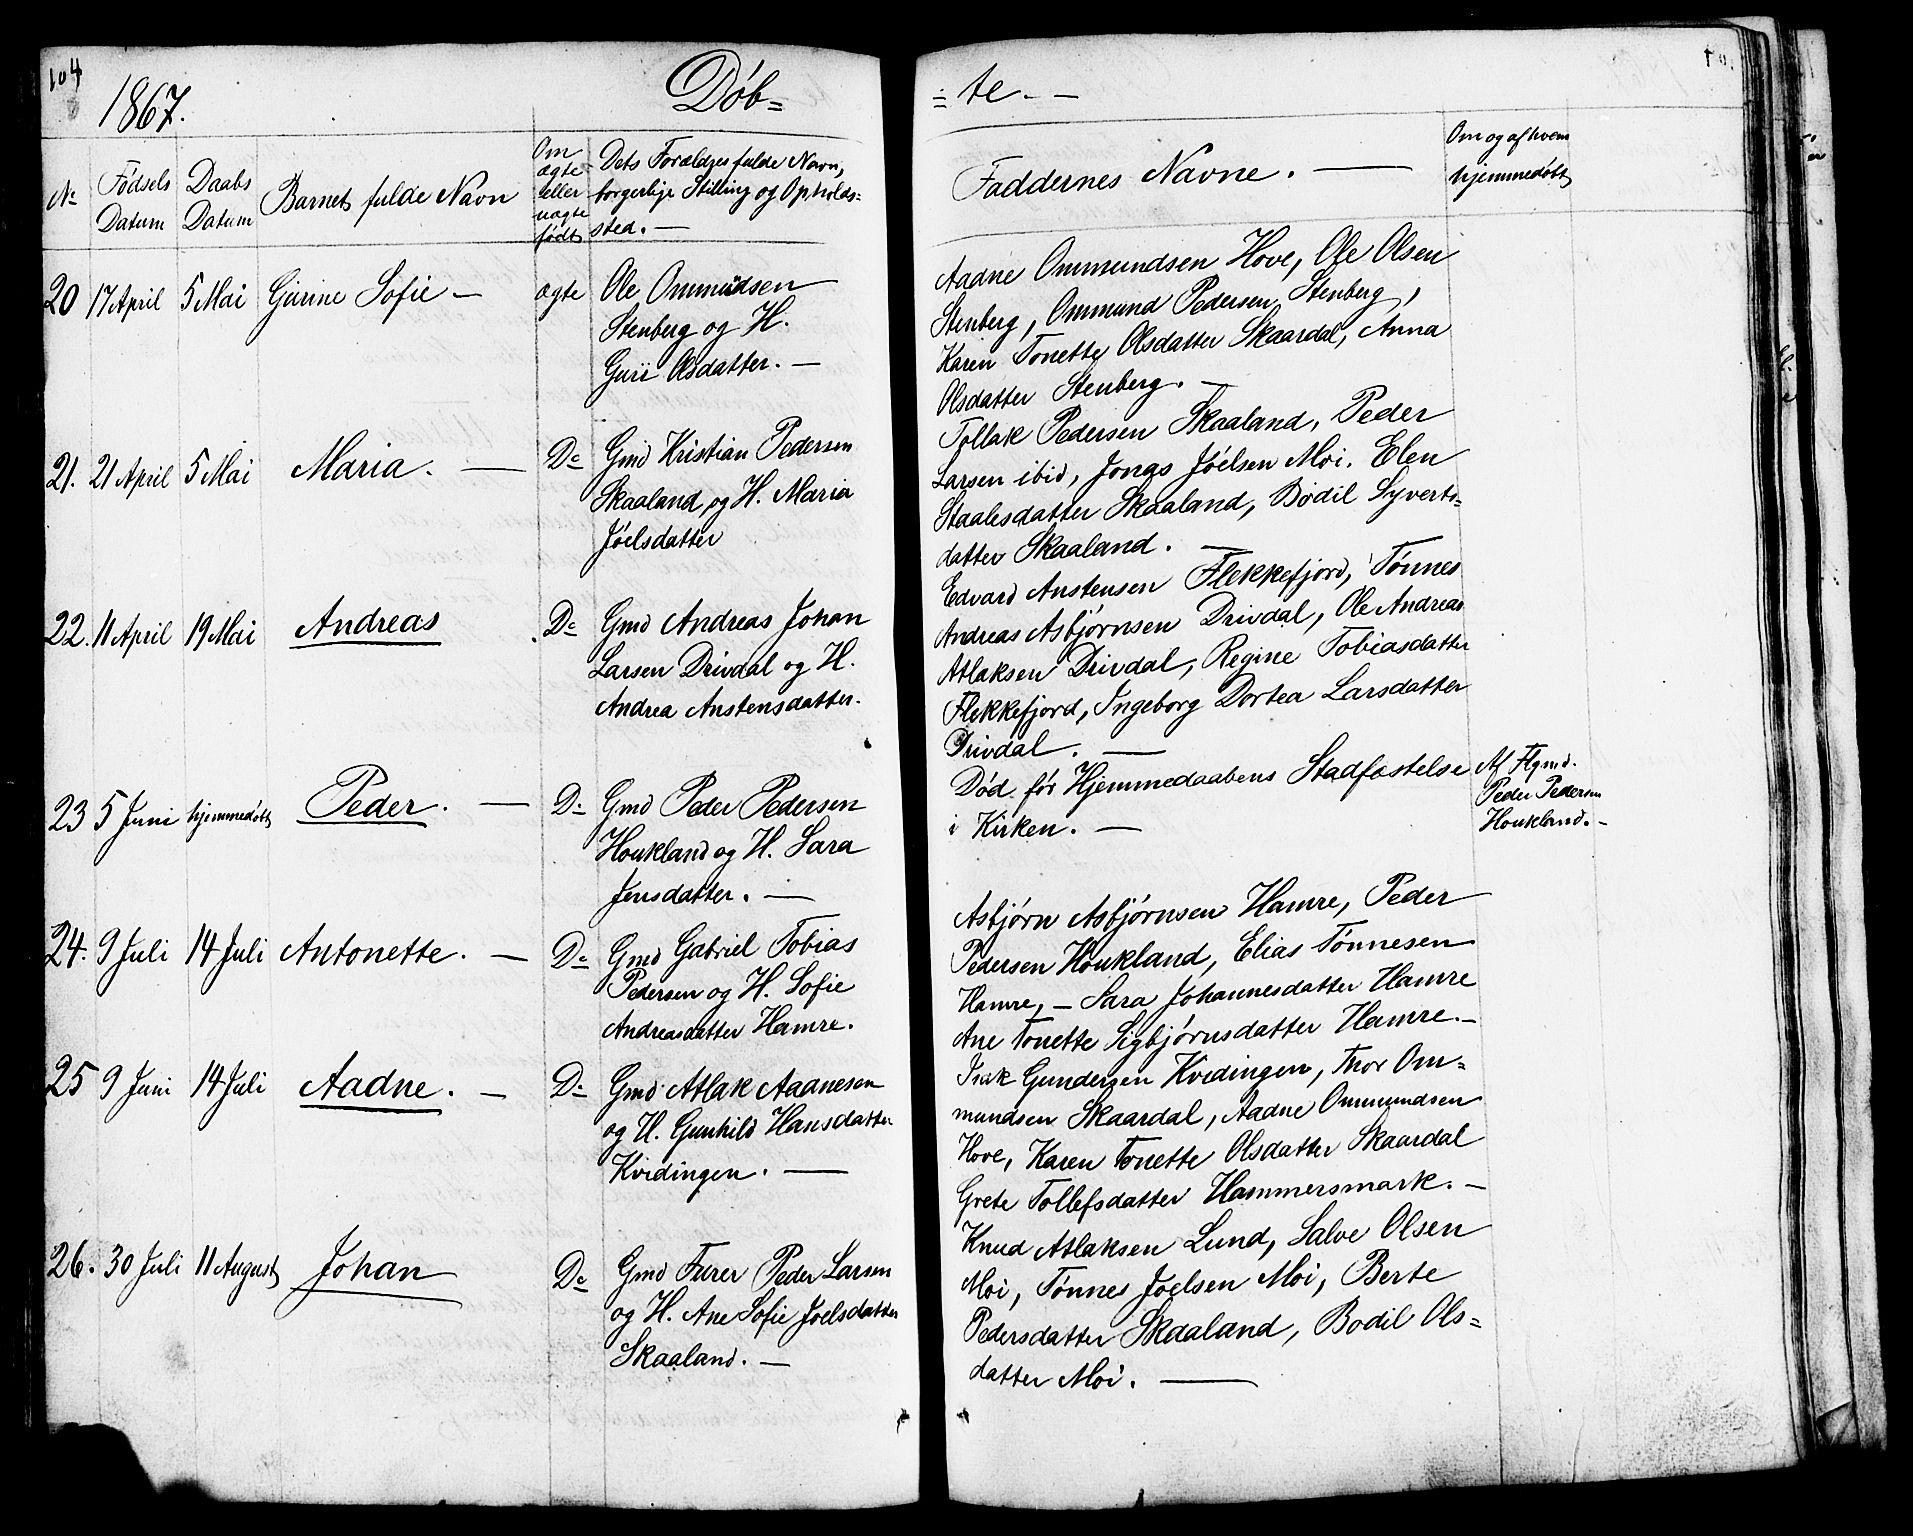 104
1867.
Døb=
№
Fødsels
Datum
Daabs
Datum
Barnets fulde Navn
Om
ægte
eller
uægte
født
Dets Forældres fulde Navn,
borgerlige Stilling og Opholds=
sted. —
20 17 April 5 Mai Gurine Sofie — ægte
Ole Ommudsen
Stenberg og H.
Guri Olsdatter. —
21. 21 April 5 Mai Maria. — Do
Gmd Kristian Pedersen
Skaaland, og H. Maria
Jóelsdatter
22. 11 April 19 Mai Andreas Do
Gmd Andreas Johan
Larsen Drivdal og H.
Andrea Anstensdatter.
23 5 Juni hjemmedøbt Peder. — Do
Gmd Peder Pedersen
Houkland og H. Sara
Jensdatter. —
24. 9 Juli 14 Juli Antonette. — Do
Gmd Gabriel Tobias
Pedersen og H. Sofie
Andreasdatter Hamre.
25 9 Juni 14 Juli Aadne. — Do
Gmd Atlak Aadnesen
og H. Gunhild Hansdatter
Kvidingen. —
26. 30 Juli 11 August Johan Do
Gmd Furer Peder Larsen
og H. Ane Sofie Joelsdatter
Skaaland. —
=te. —
Faddernes Navne. —
Om og af hvem
hjemmedøbt
Aadne Ommundsen Hove, Ole Olsen
Stenberg, Ommund Pedersen Stenberg,
Karen Tonette Olsdatter Skaardal, Anna
Olsdatter Stenberg. —
Tollak Pedersen Skaaland, Peder
Larsen ibid, Jonas Jóelsen Moi. Elen
Staalesdatter Skaaland, Bodil Syverts=
datter Skaaland. —
Edvard Anstensen Flekkefjord, Tønnes
Andreas Asbjørnsen Drivdal, Ole Andreas
Atlaksen Drivdal, Regine Tobiasdatter
Flekkefjord, Ingeborg Dortea Larsdatter
Drivdal. —
Død før Hjemmedaabens Stadfæstelse
i Kirken. —
Af Flgmd.
Peder Pedersen
Houkland. —
Asbjørn Asbjørnsen Hamre, Peder
Pedersen Houkland, Elias Tønnesen
Hamre, — Sara Johannesdatter Hamre
Ane Tonette Sigbjørnsdatter Hamre. —
Isak Gundersen Kvidingen, Thor Om=
mundsen Skaardal, Aadne Ommundsen
Hove, Karen Tonette Olsdatter Skaardal
Grete Tollefsdatter Hammersmark. —
Knud Atlaksen Lund, Salve Olsen
Moi, Tønnes Joelsen Moi, Berte
Pedersdatter Skaaland, Bodil Ols=
datter Moi. —